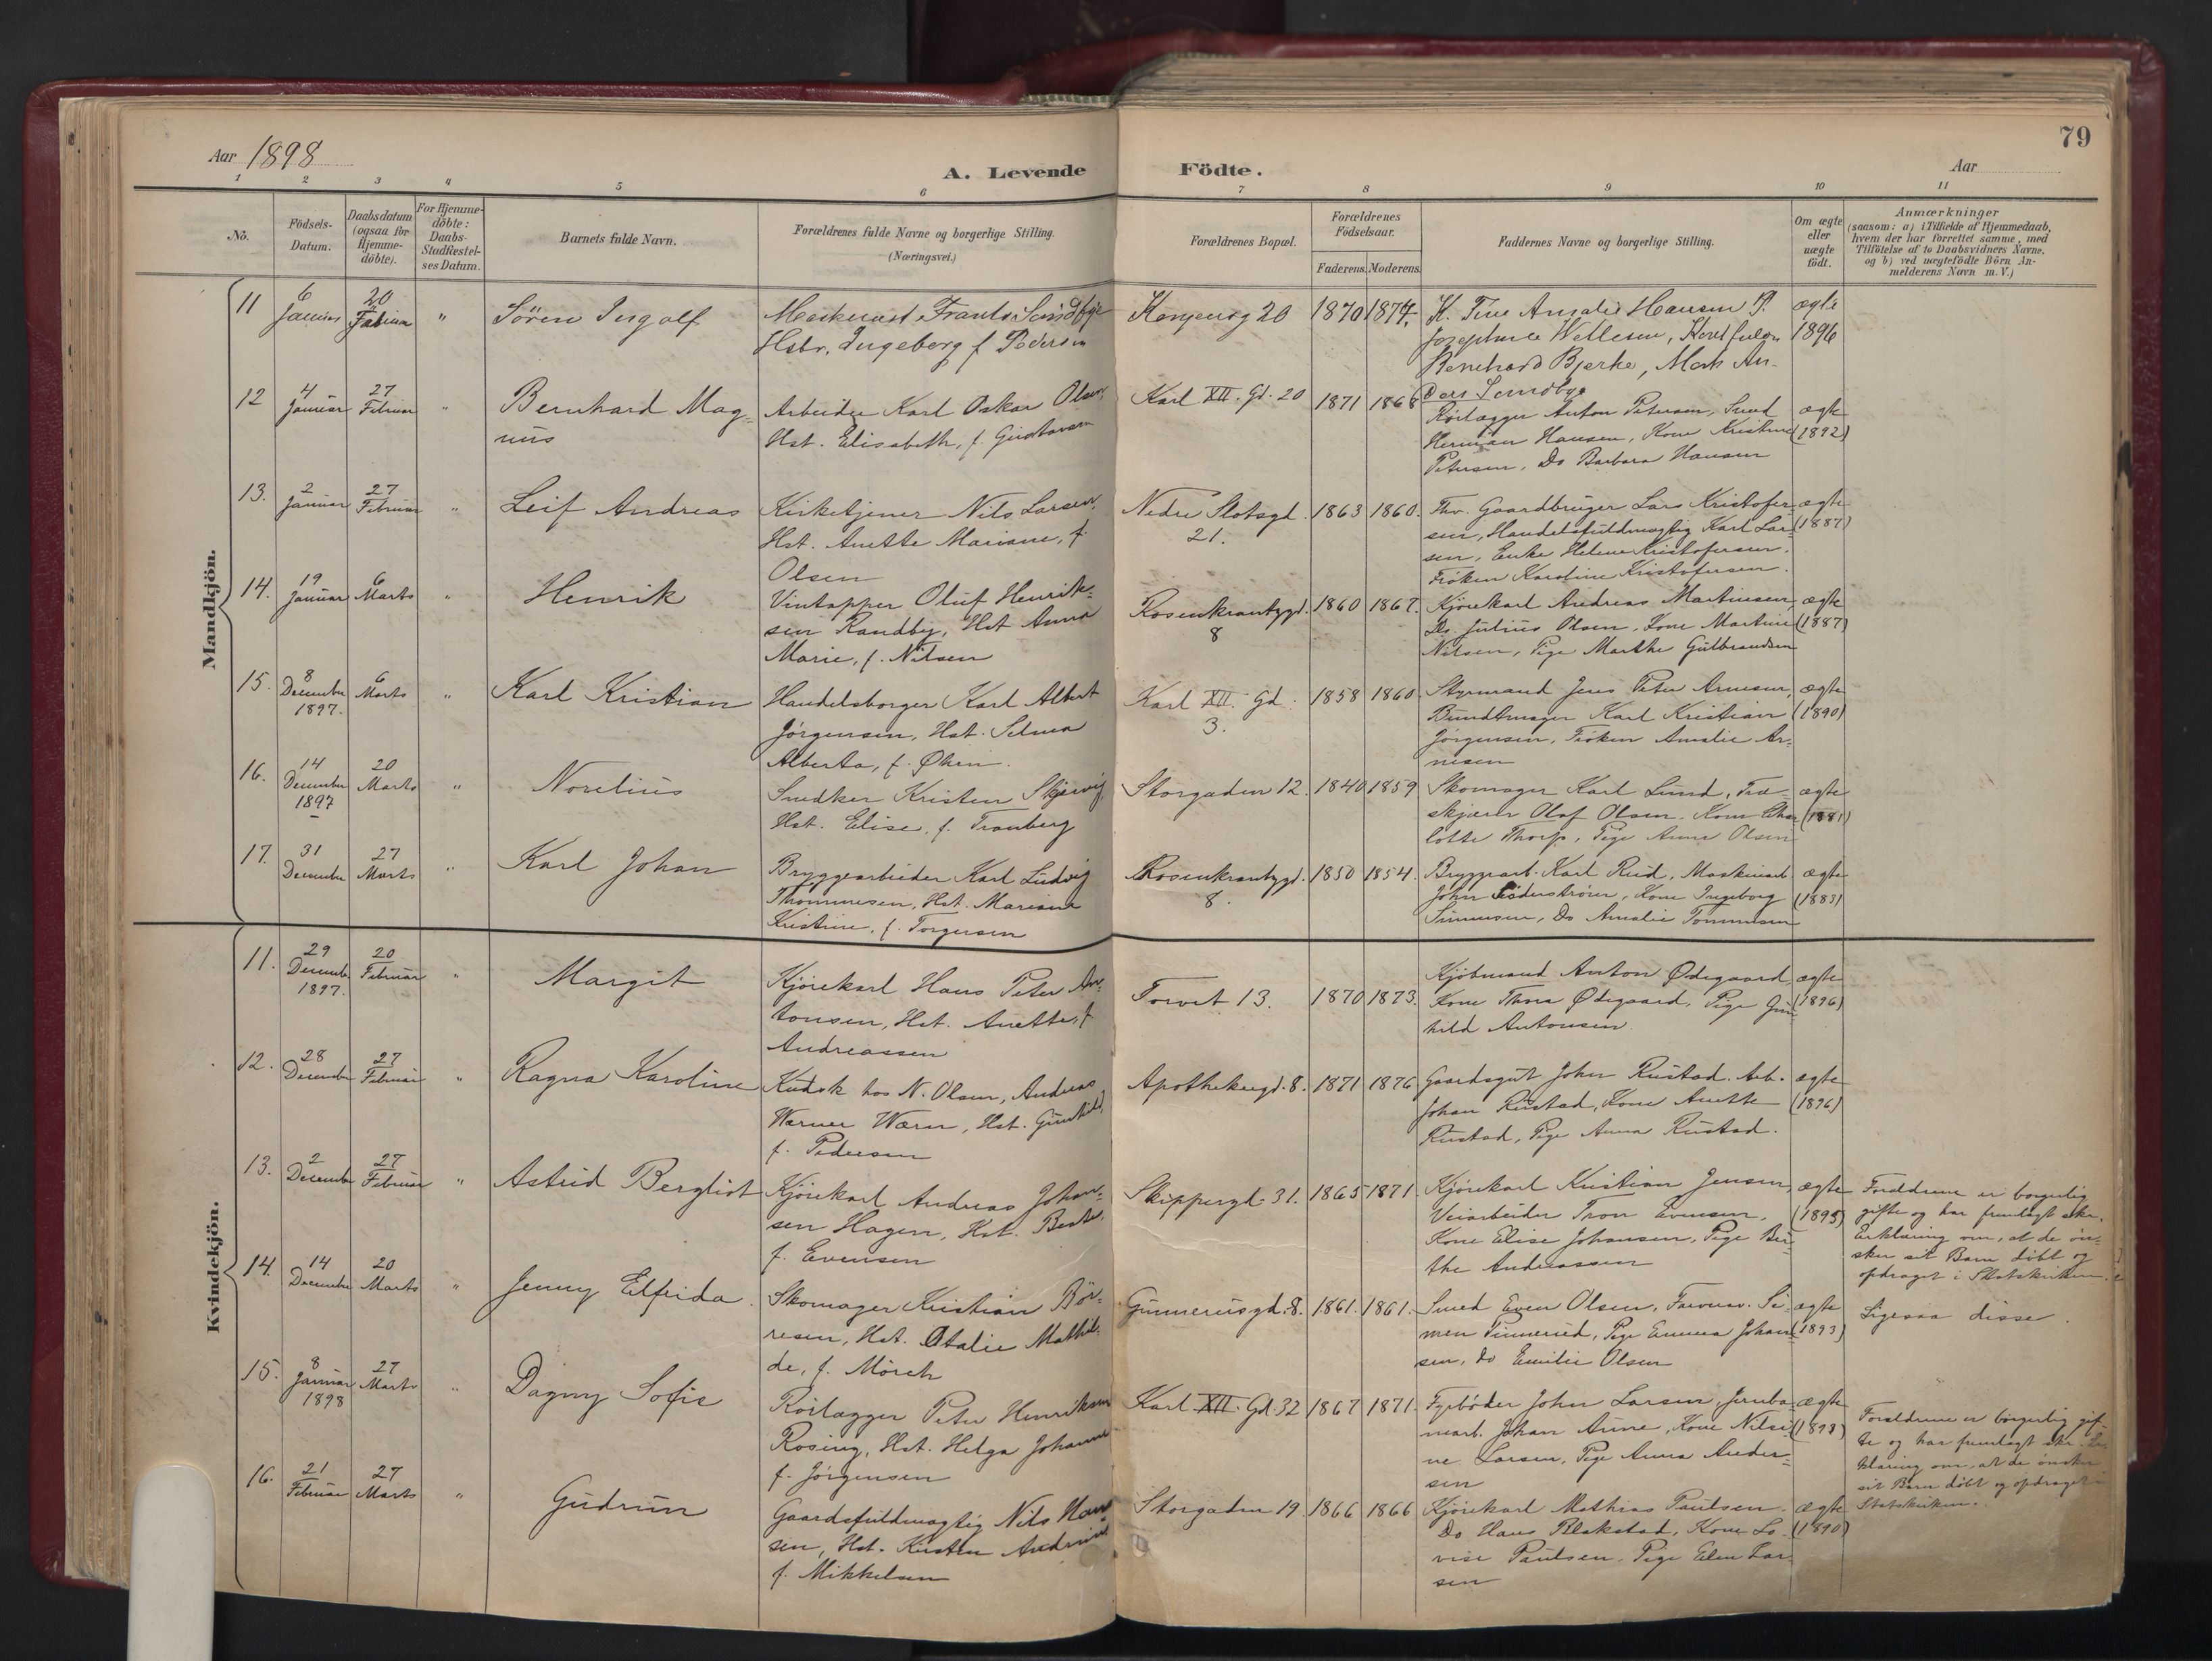 79
Aar 1898
A. Levende Födte.
Aar
1 2 3 4 5 6 7 8 9 10 11
Nō.
Födsels-
Datum.
Daabsdatum
(ogsaa for
Hjemme-
döbte).
For Hjemme-
döbte:
Daabs-
Stadfæstel-
ses Datum.
Barnets fulde Navn.
Forældrenes fulde Navne og borgerlige Stilling.
(Næringsvei.)
Forældrenes Bopæl.
Forældrenes
Födselsaar.
Faderens. Moderens.
Faddernes Navne og borgerlige Stilling.
Om ægte
eller
uægte
födt.
Anmærkninger
(saasom: a) i Tilfælde af Hjemmedaab,
hvem der har forrettet samme, med
Tilföielse af to Daabsvidners Navne.
og b) ved uægtefödte Börn An-
melderens Navn m. V.)
Mandkjön.
11
6
Januar
20
Februar
"
Sören Ingolf
Maskinist Frants Sandbye
Hstr. Ingeborg f Pedersen
20
1870 1874,
K. Tine Amalie Hansen P.
Josephine Wellesen,
Bernhard Bjerke, Mask An-
ders Sandbye
ægte
1896
12
4
Januar
27
Februar
"
Bernhard Mag-
nus
Arbeider Karl Oskar Olsen,
Hst. Elisabeth, f. Gustavsen
Karl XII. Gd. 20
1871 1868
Rörlægger Anton Petersen, Smed
Herman Hansen, Kone Kristine
Petersen, Do Barbara Hansen
ægte
(1892)
13.
2
Januar
27
Februar
"
Leif Andreas
Kirketjener Nils Larsen,
Hst. Anette Mariane, f.
Olsen
Nedre Slotsgd.
21.
1863 1860.
Fhv. Gaardbruger Lars Kristofer-
sen, Handelsfuldmægtig Karl Lar-
sen, Enke Helene Kristofersen.
Fröken Karoline Kristofersen.
ægte
(1887)
14.
19
Januar
6
Marts
"
Henrik
Vintapper Oluf Henrik-
sen Randby, Hst Anna
Marie, f. Nilsen
Rosenkrantzgd.
8
1860 1867.
Kjörekarl Andreas Martinsen,
Do. Julius Olsen, Kone Martine
Nilsen, Pige Marthe Gulbrandsen
ægte
(1887)
15.
8
December
1897.
6
Marts
"
Karl Kristian
Handelsborger Karl Albert
Jörgensen, Hst. Selma
Alberta, f. Øhin.
Karl XII. Gd.
3.
1858 1860
Styrmand Jens Peter Arnesen,
Bundtmager Karl Kristian
Jörgensen, Fröken Amalie Ar-
nesen
ægte
(1890)
16.
14
December
1897
20
Marts
"
Norelius
Snedker Kristen Skjervig,
Hst. Elise, f. Tranberg
Storgaden 12.
1840 1859
Skomager Karl Lund, Træ-
skjærer Olaf Olsen. Kone Char-
lotte Thorp, Pige Anna Olsen
ægte
(1881)
17.
31
December
27
Marts
"
Karl Johan
Bryggearbeider Karl Ludvig
Thommesen, Hst. Mariane
Kristine, f. Torgersen
Rosenkrantzgd.
8.
1850 1854.
Bryggearb. Karl Rud, Maskinarb
John Söderström, Kone Ingeborg
Simensen, Do Amalie Tommesen
ægte
(1883)
Kvindekjön.
11.
29
Decemb.
1897.
20
Februar
"
Margit
Kjörekarl Hans Peter An-
tonsen, Hst. Anette, f
Andreassen
Torvet 13.
1870 1873.
Kjöbmand Anton Ødegaard
Kone Thora Ødegaard, Pige Gun-
hild Antonsen.
ægte
(1896)
12.
28
December
27
Februar
"
Ragna Karoline
Kudsk hos N. Olsen, Andreas
Werner Wærn, Hst. Gunhild,
f. Pedersen
Apothekergd. 8.
1871 1876
Gaardsgut John Rustad. Arb.
Johan Rustad, Kone Anette
Rustad, Pige Anna Rustad.
ægte
(1896)
13.
2
December
27
Februar
"
Astrid Bergliot
Kjörekarl Andreas Johan-
sen Hagen, Hst. Berte,
f. Evensen
Skippergd. 31.
1865 1871.
Kjörekarl Kristian Jensen,
Veiarbeider Tron Evensen,
Kone Elise Johansen, Pige Ber-
the Andreassen
ægte
(1895)
Forældrene er borgerlig
gifte og har fremlagt skr.
Erklæring om, at de ön-
sker sit Barn döbt og
opdraget i Statskirken.
14.
14
December
20
Marts
"
Jenny Elfrida.
Skomager Kristian Bör-
resen, Hst. Otalie Mathil-
de, f. Mörch
Gunnerusgd. 8.
1861. 1861.
Smed Even Olsen, Farver. Si-
men Finnerud, Pige Emma Johan-
sen, do Emilie Olsen
ægte
(1893)
Ligesaa disse.
15.
8
Januar
1898
27
Marts
"
Dagny Sofie
Rörlægger Peter Henriksen
Rosing, Hst. Helga Johanne
f. Jörgensen
Karl XII. Gd. 32
1867 1871.
Fyrböder John Larsen, Jernba-
nearb. Johan Arne, Kone Nilsi-
ne Larsen, Pige Anna Ander-
sen
ægte
(1898)
Forældrene er borgerlig gif-
te og har fremlagt skr. Er-
klæring om, at de ønsker
sit Barn döbt og opdraget i
Statskirken.
16.
21
Februar
27
Marts
"
Gudrun
Gaardsfuldmægtig Nils Han-
sen, Hst. Kirsten Andrine
f. Mikkelsen
Storgaden 19.
1866 1866
Kjörekarl Mathias Paulsen.
Do Hans Blakstad, Kone Lo-
vise Paulsen. Pige Elen Lar-
sen
ægte
(1890)